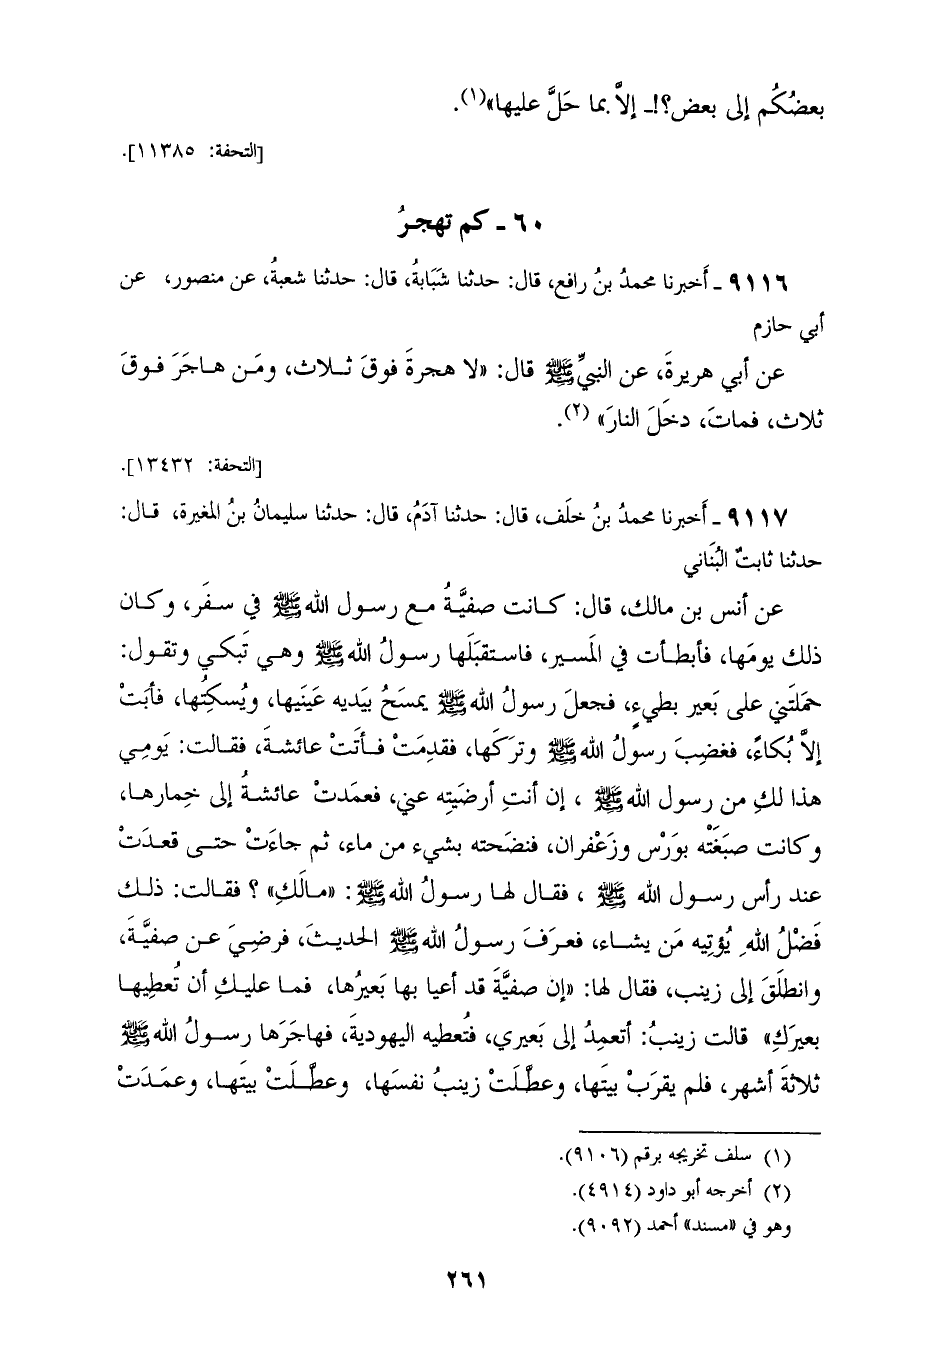 بعضُكُم إلى بعض؟!ـ إلاَّ بما حَلَّ عليها»(١).
[التحفة: ١١٣٨٥].
٦٠ ـ كم تهجرُ
٩١١٦ ـ أَخبرنا محمدُ بنُ رافع، قال: حدثنا شَبَابةُ، قال: حدثنا شعبةُ، عن منصور، عن
أبي حازم
عن أبي هريرةَ، عن النبيِّ ﷺ قال: «لا هجرةَ فوقَ ثلاث، ومَن هاجَرَ فوقَ
ثلاث، فماتَ، دخَلَ النارَ» (٢).
[التحفة: ١٣٤٣٢].
٩١١٧ ـ أَخبرنا محمدُ بنُ خلَف، قال: حدثنا آدَمُ، قال: حدثنا سليمانُ بنُ المغيرة، قال:
حدثنا ثابتٌ البُنَاني
عن أنس بن مالك، قال: كانت صفيَّةُ مع رسول الله ﷺ في سفَر، وكان
ذلك يومَها، فأبطأت في المَسير، فاستقبَلَها رسولُ الله ﷺ وهي تَبكي وتقول:
حمَلَتَني على بَعير بطيءٍ، فجعلَ رسولُ الله ﷺ يمسَحُ بيَديه عَينَيها، ويُسكِتُها، فأبَتْ
إلاَّ بُكاءً، فغضِبَ رسولُ الله ﷺ وترَكَها، فقدِمَتْ فأتَتْ عائشةَ، فقالت: يَومِي
هذا لكِ من رسول الله ﷺ ، إن أنتِ أرضَيتِه عني، فعمَدتْ عائشةُ إلى خِمارها،
وكانت صبَغَتْه بوَرْس وزَعْفران، فنضَحته بشيء من ماء، ثم جاءَتْ حتى قعدَتْ
عند رأس رسول الله ﷺ ، فقال لها رسولُ الله ﷺ: «مالَكِ» ؟ فقالت: ذلك
فَضْلُ اللهِ يُؤتِيه مَن يشاء، فعرَفَ رسولُ الله ﷺ الحديثَ، فرضِيَ عن صفيَّةَ،
وانطلَقَ إلى زينب، فقال لها: «إن صفيَّةَ قد أعيا بها بَعيرُها، فما عليكِ أن تُعطِيها
بعيرَكِ» قالت زينبُ: أتعمِدُ إلى بَعيري، فتُعطيه اليهوديةَ، فهاجَرَها رسولُ الله ﷺ
ثلاثةَ أشهر، فلم يقرَبْ بيتَها، وعطَّلَتْ زينبُ نفسَها، وعطَّلَتْ بيتَها، وعمَدَتْ
(١) سلف تخريجه برقم (٩١٠٦).
(٢) أخرجه أبو داود (٤٩١٤).
وهو في «مسند» أحمد (٩٠٩٢).
٢٦١